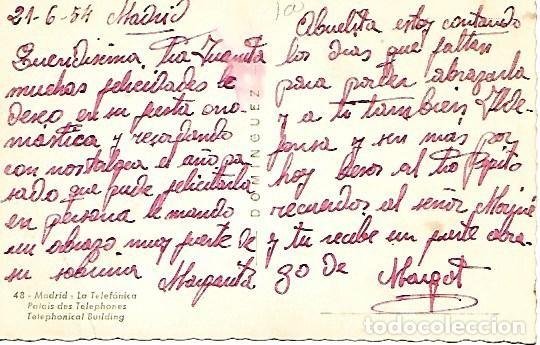 21-6-54 Madrid
Queridisima Tia Juanita
muchas felicidades le
deseo en su fiesta ono-
mástica y recordando
con nostalgia el año pa-
sado que pude felicitarla
en persona le mando
un abrazo muy fuerte de
su sobrina Margarita
48 - Madrid - La Telefónica
Palais des Telephones
Telephonical Building
DOMINGUEZ
100
Abuelita estoy contando
los dias que faltan
para poder abrazarla
y a ti tambien Ilde-
fonsa y sin mas por
hoy besos al tio Pepito
recuerdos al señor
y tu recibe un fuerte abra-
zo de Margot
todocoleccion